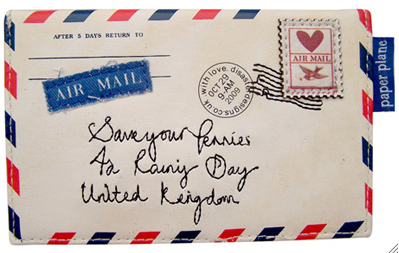 AFTER 5 DAYS RETURN TO
AIR MAIL
with love, disasterdesigns.co.uk
OCT 29
9-AM
2009
AIR MAIL
paper plane
Save your Pennies
4a Rainy Day
United Kingdom